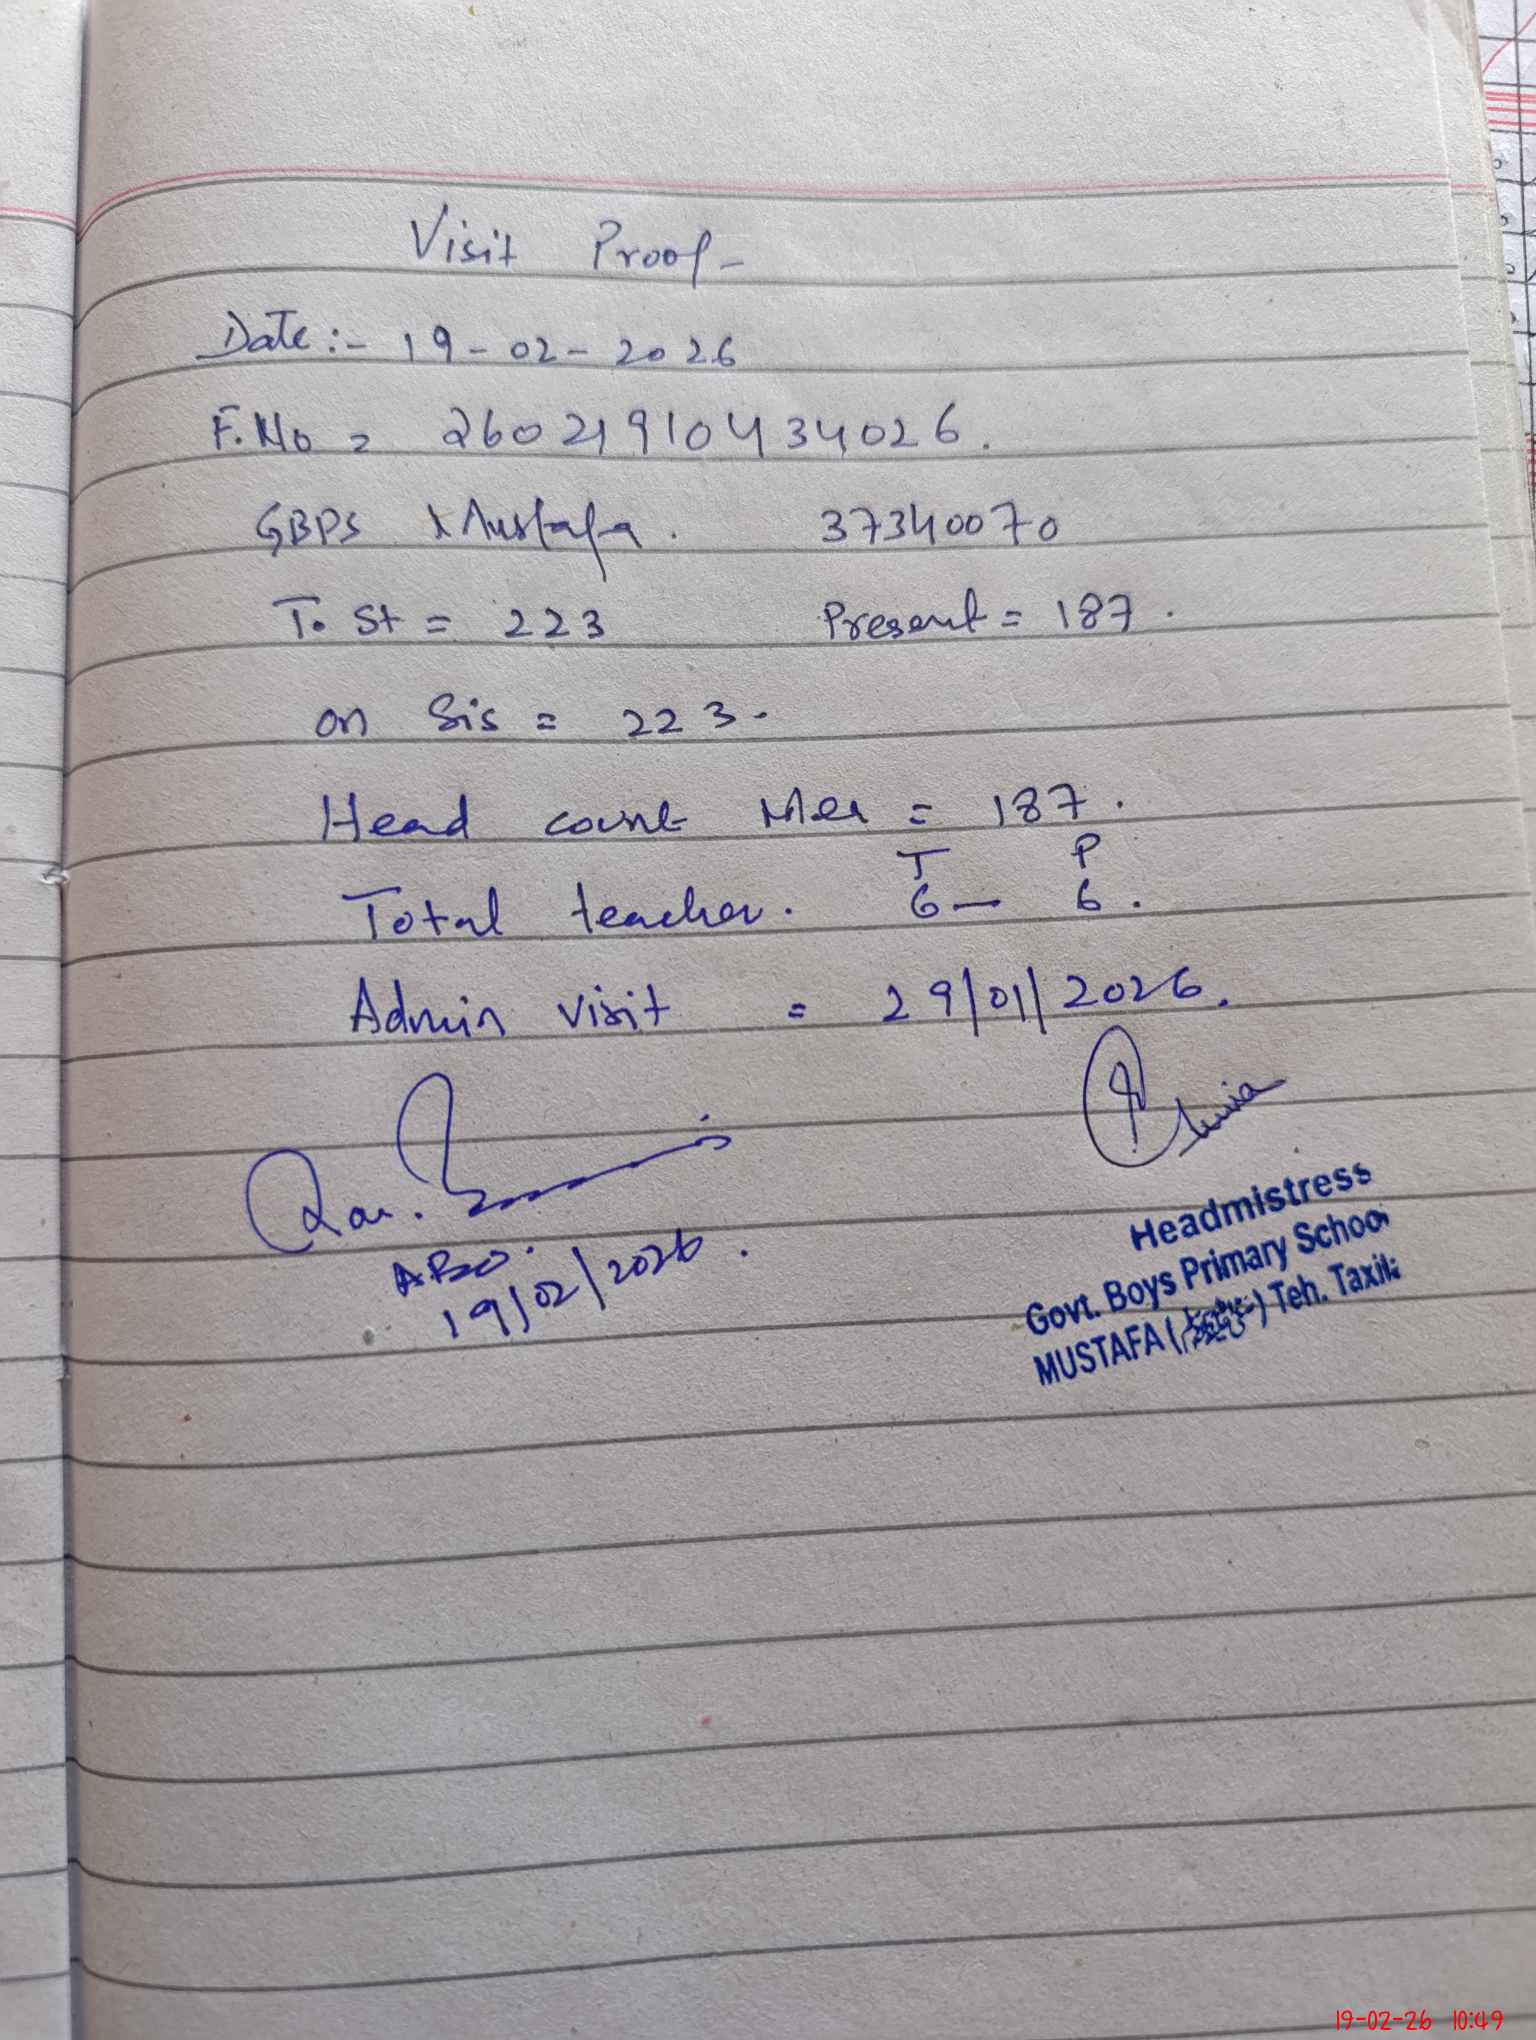 Visit Proof -
Date :- 19 - 02 - 2026
F. No = 260219104 34026.
GBPS Mustafa. 37340070
T. St = 223 Present = 187.
on Sis = 223.
Head count = 187.
T P
Total teacher. 6 — 6.
Admin visit = 29/01/2026.
19/02/2026.
Headmistress
Govt. Boys Primary School
MUSTAFA ( ) Teh. Taxila
19-02-26 10:49